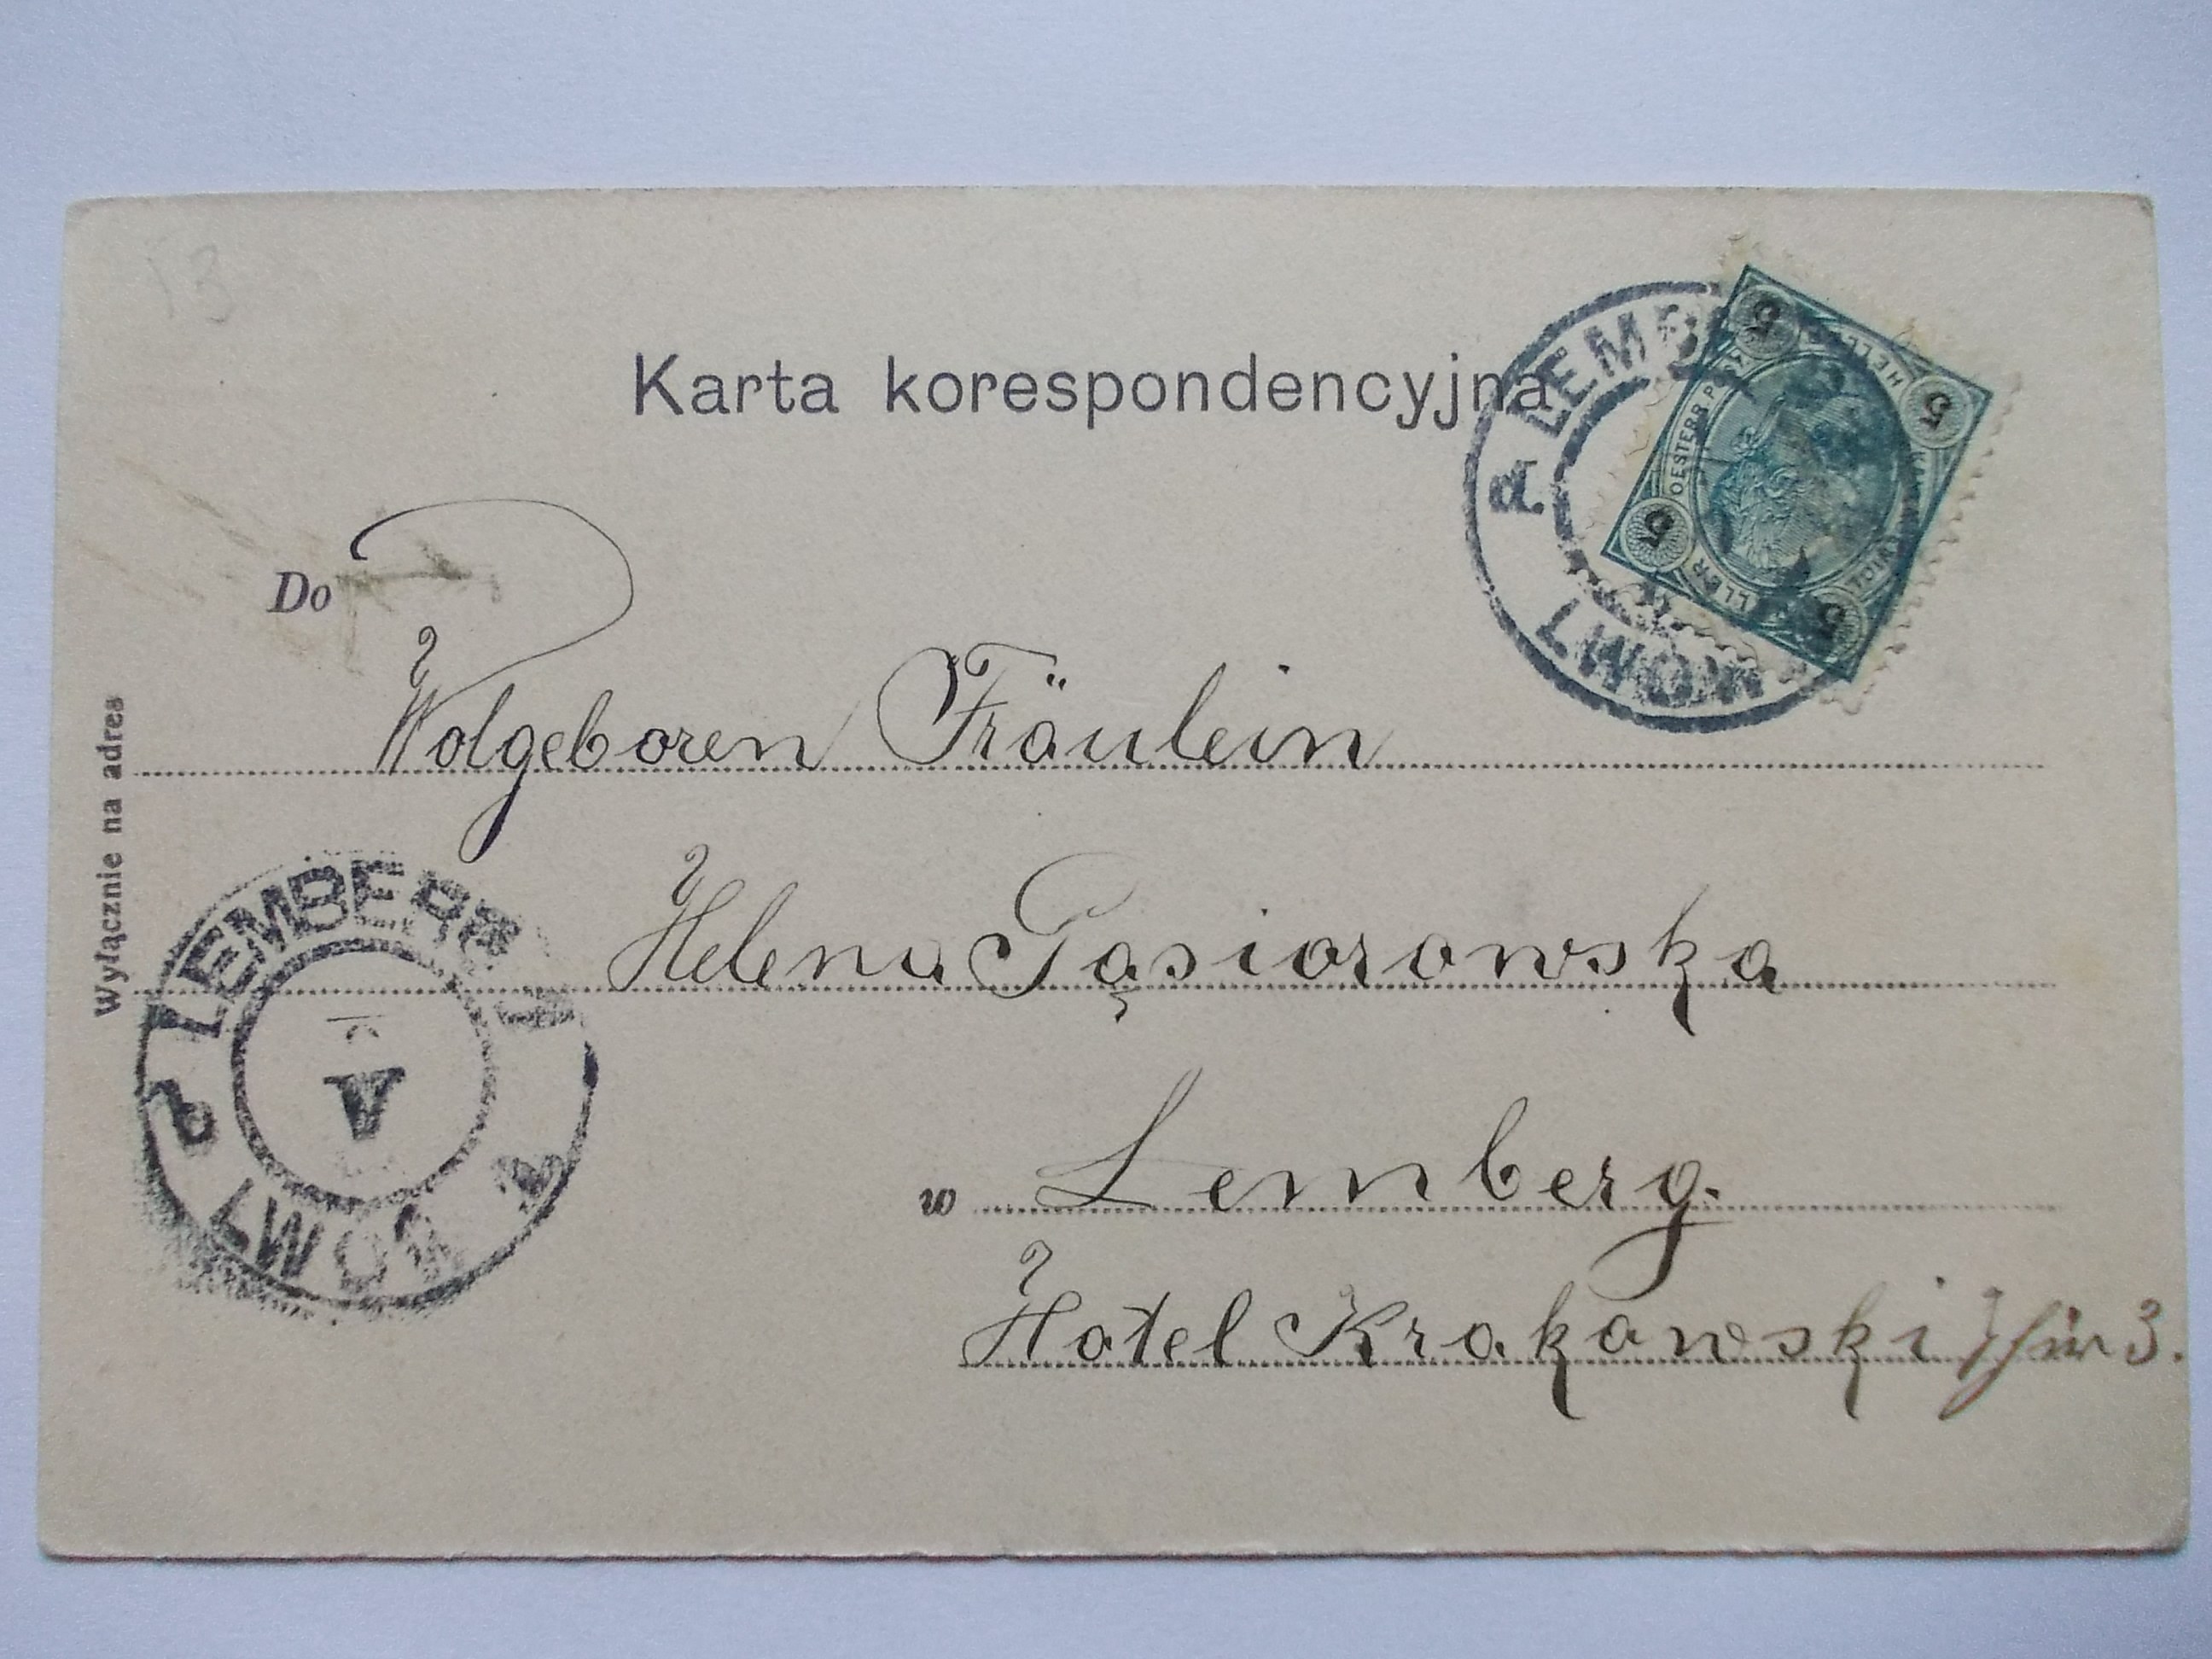 13
Karta korespondencyjna
LEMBE
a.
LWÓW
5 5 5 5
OESTERR. POST
HELLER
Do
Wolgeboren Fräulein
Wyłącznie na adres
Helena Gąsiorowska
LEMBERG
V
LWÓW
w Lemberg.
Hotel Krakowski Thür 3.